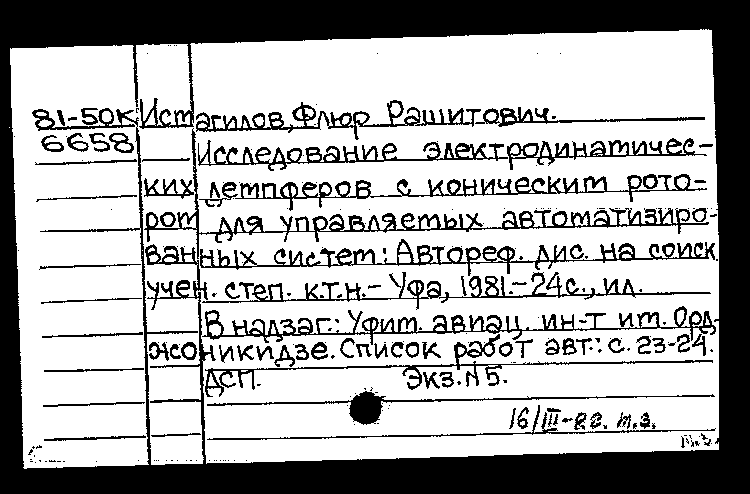 81-50к Истагилов, Флюр Рашитович.
6658 Исследование электродинамичес-
ких демпферов с коническим рото-
ром для управляемых автоматизиро-
ванных систем: Автореф. дис. на соиск
учен. степ. к.т.н.- Уфа, 1981.-24с., ил.
В надзаг.: Уфим. авиац. ин-т им. Орд-
жоникидзе. Список работ авт.: с. 23-24.
ДСП. Экз.N5.
16/III-82г. т.з.